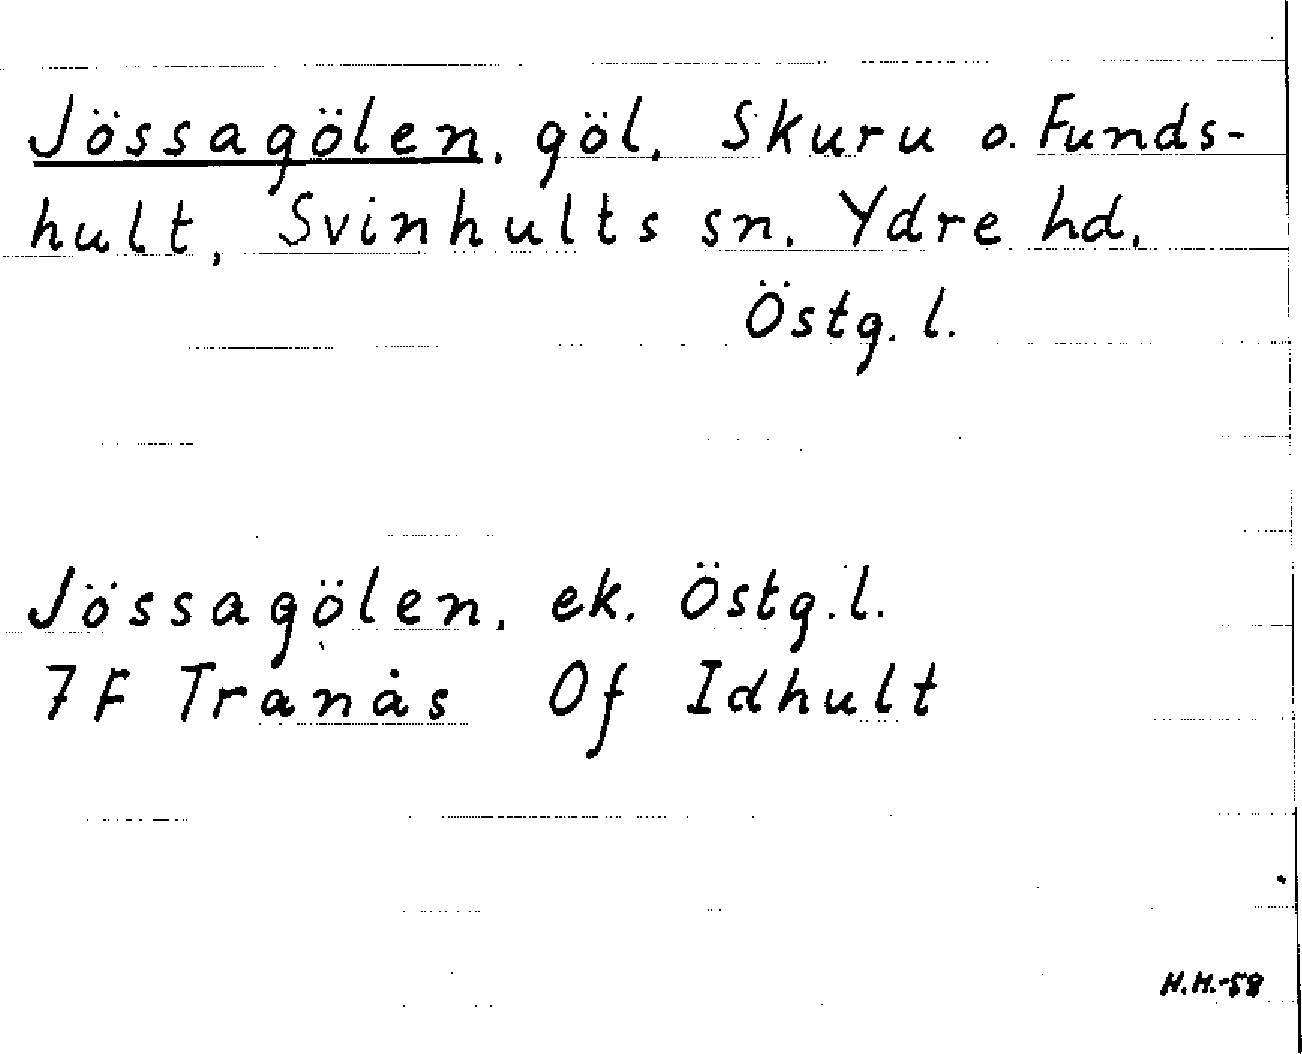 Jössagölen, göl, Skuru o. Funds-
hult, Svinhults sn, Ydre hd,
Östg. l.
Jössagölen, ek. Östg. l.
7F Tranås Of Idhult
H.H.-58